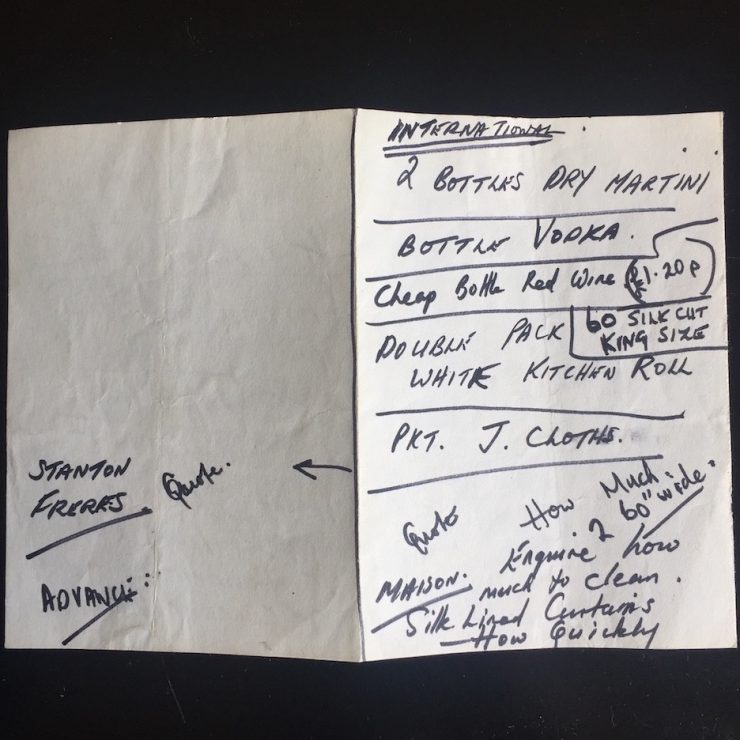 STANTON
FRERES. Quote.
ADVANCE:
INTERNATIONAL.
2 BOTTLES DRY MARTINI
BOTTLE VODKA.
Cheap Bottle Red Wine £1.20p
60 SILK CUT
KING SIZE
DOUBLE PACK
WHITE KITCHEN ROLL
PKT. J. CLOTHS.
Quote How Much:
2 60" wide:
MAISON. Enquire how
much to clean.
Silk Lined Curtains
How Quickly